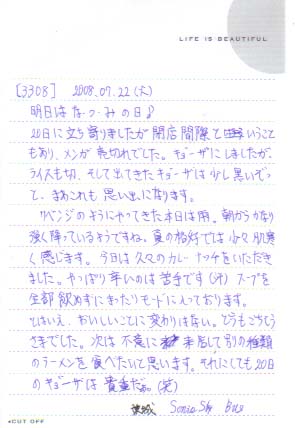 LIFE IS BEAUTIFUL
[3308] 2008.07.22(火)
明日はな・つ・みの日♪
20日に立ち寄りましたが閉店間際ということ
もあり、メンが売切れでした。ギョーザにしましたが、
ライスも切、そして出てきたギョーザは少し黒いぞっ
て、まあこれも思い出になります。
リベンジのようにやってきた本日は雨。朝からかなり
強く降っているようですね。夏の格好では少々肌寒
く感じます。今日は久々のカレーナッチをいただき
ました。やっぱり辛いのは苦手です(汗)スープを
全部飲めずにまったりモードに入っております。
とはいえ、おいしいことに変わりはない。どうもごちそう
さまでした。次は不意に来店して別の種類
のラーメンを食べたいと思います。それにしても20日
のギョーザは貴重だな(笑)
茨城 Sonic Sky Blue
CUT OFF